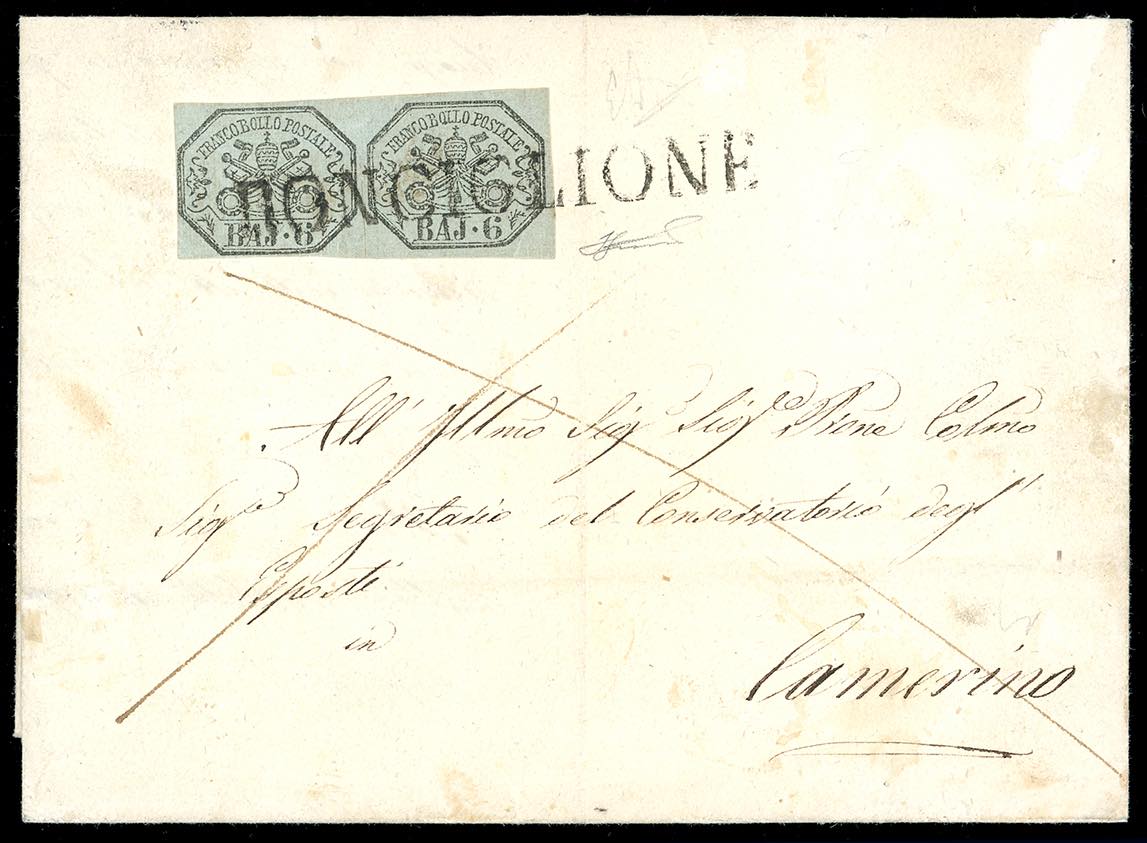 FRANCO BOLLO POSTALE FRANCO BOLLO POSTALE
BAJ. 6 BAJ. 6
RONCIGLIONE
All' Illmo Sig Sigre Prone Colmo
Sigre Segretario del Conservatorio degl'
Esposti
in
Camerino